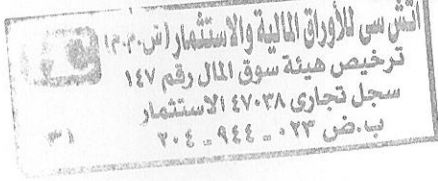 اتش سى للأوراق المالية والاستثمار (ش.م.م)
ترخيص هيئة سوق المال رقم ١٤٧
سجل تجارى ٤٧٠٣٨ الاستثمار
ب.ض ٠٢٣ - ٩٤٤ - ٢٠٤
٣١